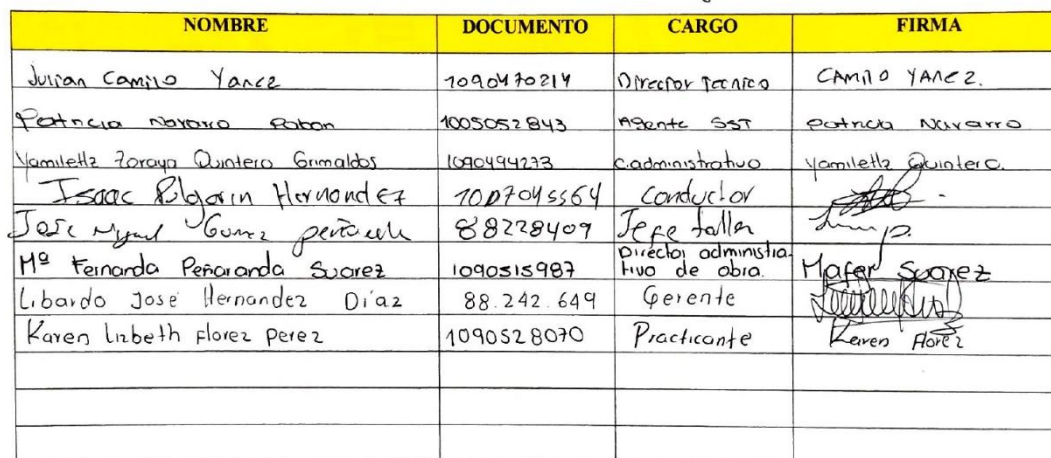 NOMBRE DOCUMENTO CARGO FIRMA
Julian Camilo Yanez 1090470214 Director Tecnico CAMILO YANEZ.
Patricia Navarro Pabon 1005052843 Agente SST Patricia Navarro
Yamileth Zoraya Quintero Grimaldos 1090494273 c.administrativo Yamileth Quintero.
Isaac Hernandez 1007045564 conductor
Jose Miguel Gomez 88228409 Jefe taller
Mª Fernanda Peñaranda Suarez 1090515987 Director administra-
tivo de obra. Mafer Suarez
Libardo José Hernandez Díaz 88.242.649 Gerente
Karen lizbeth Florez perez 1090528070 Practicante Karen Florez